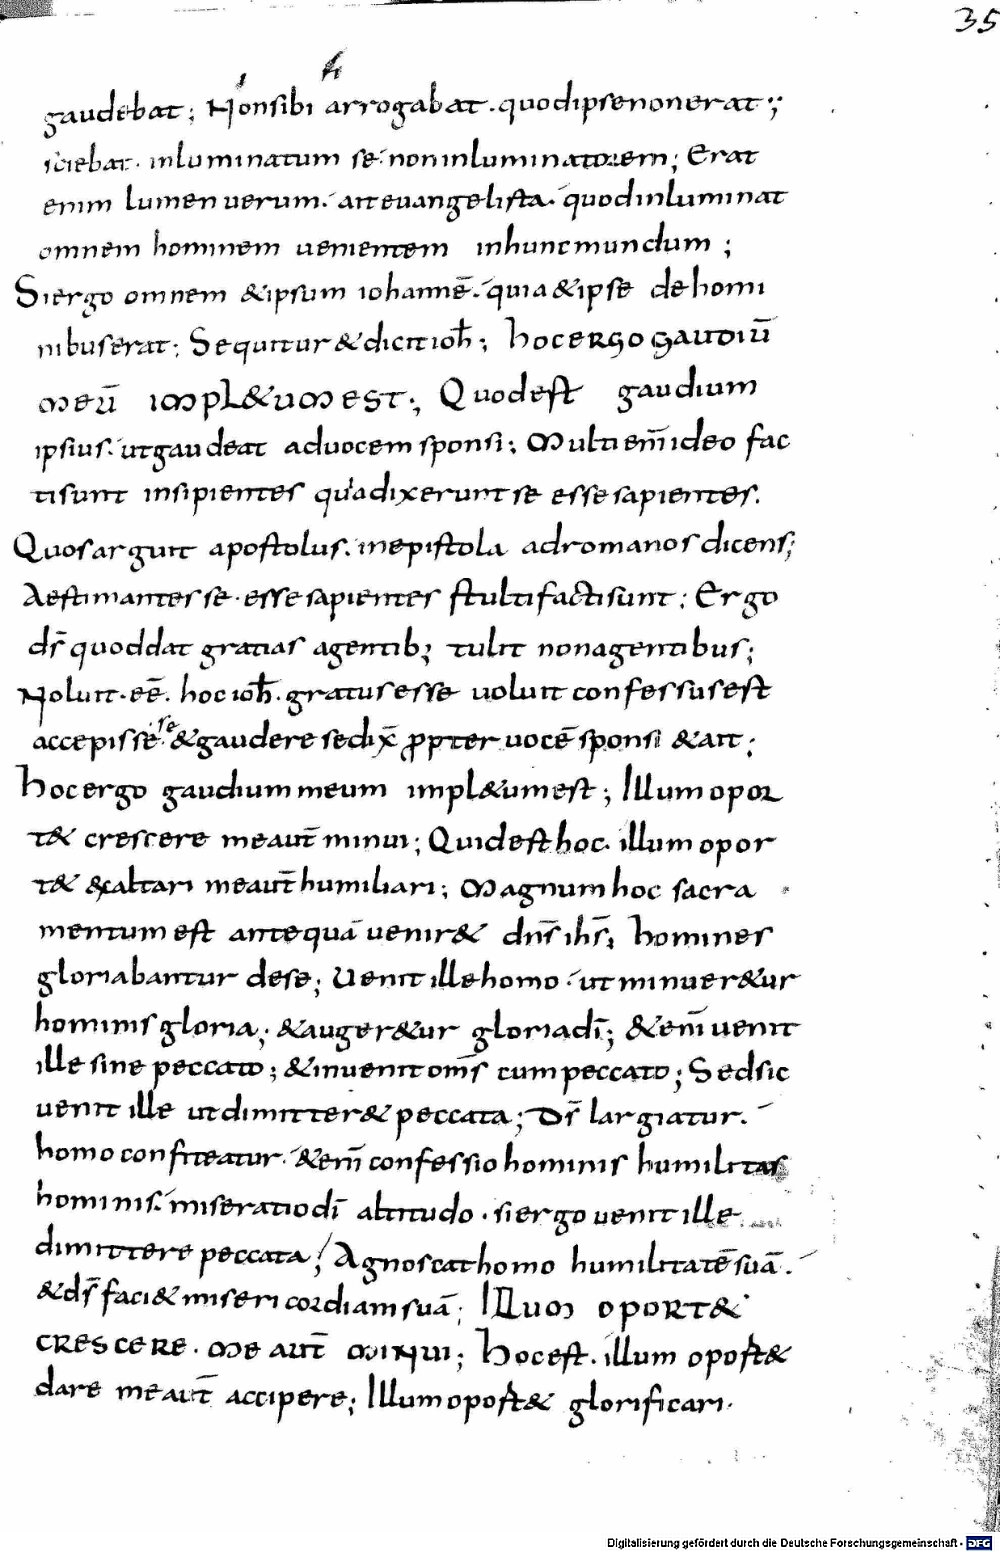 35
gaudebat; Non sibi arrogabat. quod ipse non erat;
sciebat. inluminatum se. non inluminatorem; Erat
enim lumen uerum. ait euangelista. quod inluminat
omnem hominem uenientem in hunc mundum;
Si ergo omnem & ipsum iohannē. quia & ipse de homi
nibus erat; Sequitur & dicit ioħ; Hoc ergo gaudiū
meū impl&um est; Quod est gaudium
ipsius. ut gaudeat ad uocem sponsi; Multi em̄ ideo fac
ti sunt insipientes quia dixerunt se esse sapientes.
Quos arguit apostolus. in epistola ad romanos dicens;
Aestimantes se. esse sapientes stulti facti sunt; Ergo
ds̄ quod dat gratias agentib; tulit non agentibus;
Noluit. eē. hoc ioħ. gratus esse uoluit confessus est
accepisse. se & gaudere se dix̄ ꝓpter uocē sponsi & ait;
Hoc ergo gaudium meum impl&um est; Illum opor
t& crescere me aut̄ minui; Quid est hoc. illum opor
t& exaltari me aut̄ humiliari; Magnum hoc sacra
mentum est antequā uenir& dn̄s ihs̄; Homines
gloriabantur de se; Uenit ille homo. ut minuer&ur
hominis gloria; & auger&ur gloria dī; & em̄ uenit
ille sine peccato; & inuenit om̄s cum peccato; Sed sic
uenit ille ut dimitter& peccata; Ds̄ largiatur.
homo confiteatur. & em̄ confessio hominis humilitas
hominis. miseratio dī altitudo. si ergo uenit ille
dimittere peccata; Agnoscat homo humilitatē suā.
& ds̄ faci& misericordiam suā; Illum oport&
crescere. me aut̄ minui; Hoc est. illum oport&
dare me aut̄ accipere; Illum oport& glorificari.
Digitalisierung gefördert durch die Deutsche Forschungsgemeinschaft - DFG